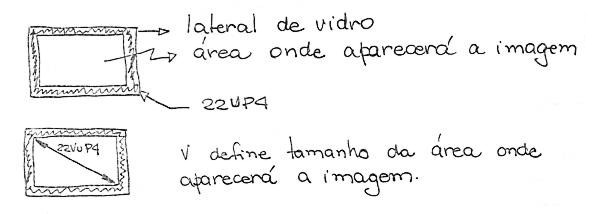 lateral de vidro
área onde aparecerá a imagem
22VP4
22VuP4
V define tamanho da área onde
aparecerá a imagem.